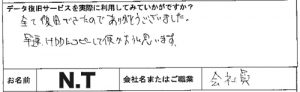 データ復旧サービスを実際に利用してみていかがですか?
全て復旧できたので ありがとうございました。
早速HDDにコピーして使おうと思います。
お名前 N.T 会社名またはご職業 会社員